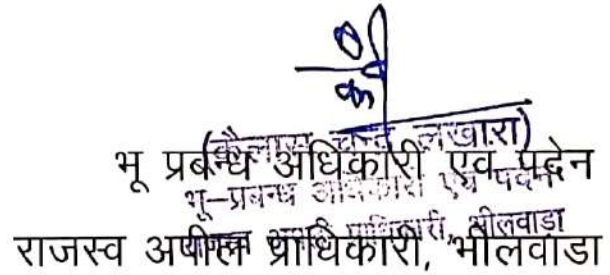 (कैलाश चन्द्र लखारा)
भू प्रबन्ध अधिकारी एवं पदेन
भू-प्रबन्ध अधिकारी एवं पदेन
राजस्व अपील प्राधिकारी, भीलवाडा
राजस्व अपील प्राधिकारी, भीलवाडा